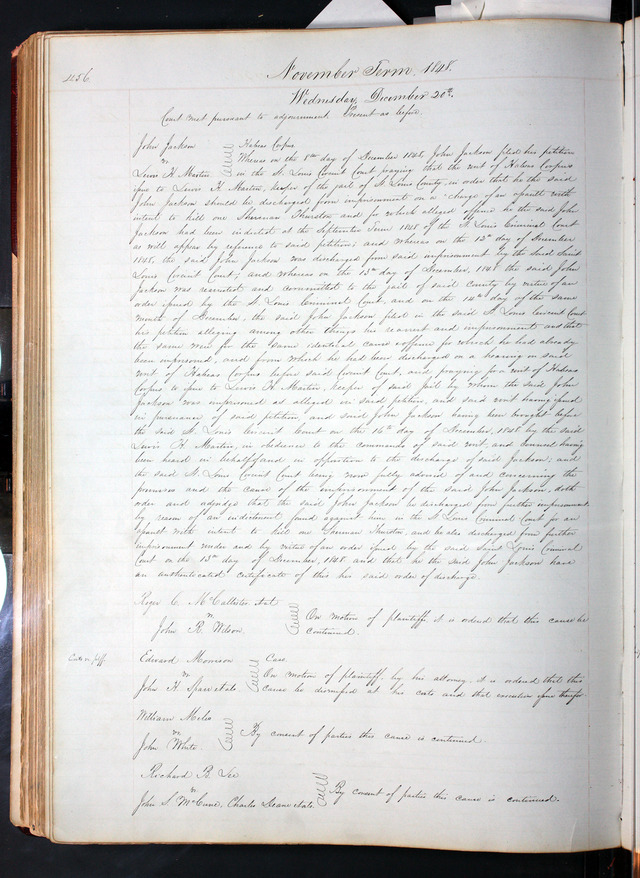 456
November Term 1848.
Wednesday, December 20th.
Court met pursuant to adjournment. Present as before.
John Jackson
vs
Lewis H. Martin
Habeas Corpus
Whereas on the 8th day of December 1848, John Jackson filed his petition
in the St. Louis Circuit Court praying that the writ of Habeas Corpus
issue to Lewis H. Martin, keeper of the jail of St. Louis County, in order that he the said
John Jackson should be discharged from imprisonment on a charge of an assault with
intent to kill one Thurston and for which alleged offence he the said John
Jackson had been indicted at the September Term 1848 of the St. Louis Criminal Court
as will appear by reference to said petition; and whereas on the 12th day of December
1848, the said John Jackson was discharged from said imprisonment by the said Saint
Louis Circuit Court; and whereas on the 13th day of December, 1848 the said John
Jackson was rearrested and committed to the jail of said county by virtue of an
order issued by the St. Louis Criminal Court, and on the 14th day of the same
month of December, the said John Jackson filed in the said St. Louis Circuit Court
his petition alleging among other things his rearrest and imprisonment and that
the same were for the same identical cause & offence for which he had already
been imprisoned, and from which he had been discharged on a hearing on said
writ of Habeas Corpus before said Circuit Court, and praying for a writ of Habeas
Corpus to issue to Lewis H. Martin, keeper of said jail by whom the said John
Jackson was imprisoned as alleged in said petition, and said writ having issued
in pursuance of said petition and said John Jackson having been brought before
the said St. Louis Circuit Court on the 16th day of November, 1848 by the said
Lewis H. Martin, in obedience to the commands of said writ, and counsel having
been heard in behalf of and in opposition to the discharge of said Jackson; and
the said St. Louis Circuit Court being now fully advised of and concerning the
premises and the cause of the imprisonment of the said John Jackson, doth
order and adjudge that the said John Jackson be discharged from further imprisonment
reason of an indictment found against him in the St. Louis Criminal Court for an
assault with intent to kill one Thurston, and he also discharged from further
imprisonment under and by virtue of an order issued by the said Saint Louis Criminal
Court on the 13th day of December, 1848 and that he the said John Jackson have
an authenticated certificate of this his said order of discharge.
Roger C. McCallister et al
vs
John R. Wilson.
On motion of plaintiffs, it is ordered that this cause be
continued.
Costs vs plff.
Edward Morrison
vs
John H. Sparr et als.
Case.
On motion of plaintiff by his attorney, it is ordered that this
cause be dismissed at his costs and that execution issue therefor.
William Miles
vs
John White.
By consent of parties this cause is continued.
Richard B. Lee
vs
John S. McCune, Charles Deane et als.
By consent of parties this cause is continued.